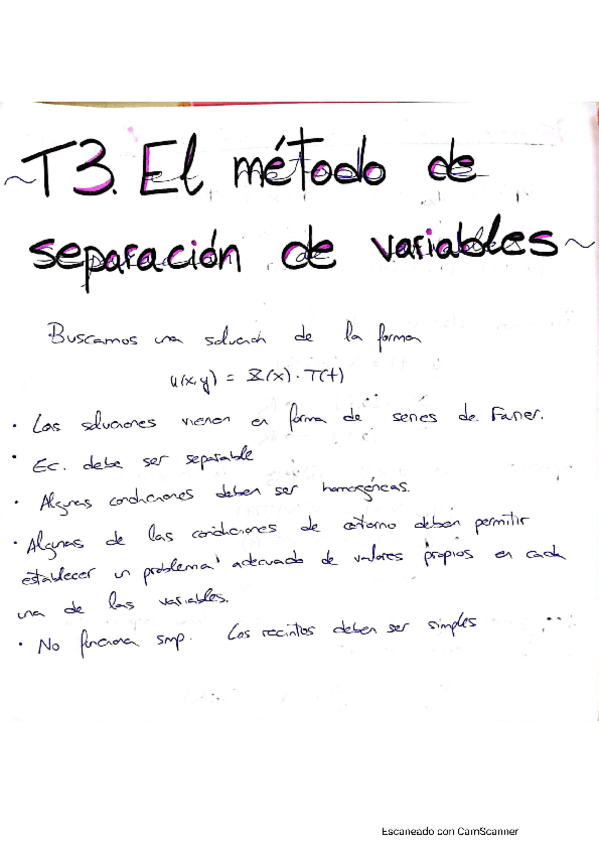 ~T3. El método de
separación de variables~
Buscamos una solución de la forma
u(x,y) = X(x)·T(t)
· Las soluciones vienen en forma de series de Fourier.
· Ec. debe ser separable
· Algunas condiciones deben ser homogéneas.
· Algunas de las condiciones de contorno deben permitir
establecer un problema adecuado de valores propios en cada
una de las variables.
· No funciona smp. Los recintos deben ser simples
Escaneado con CamScanner